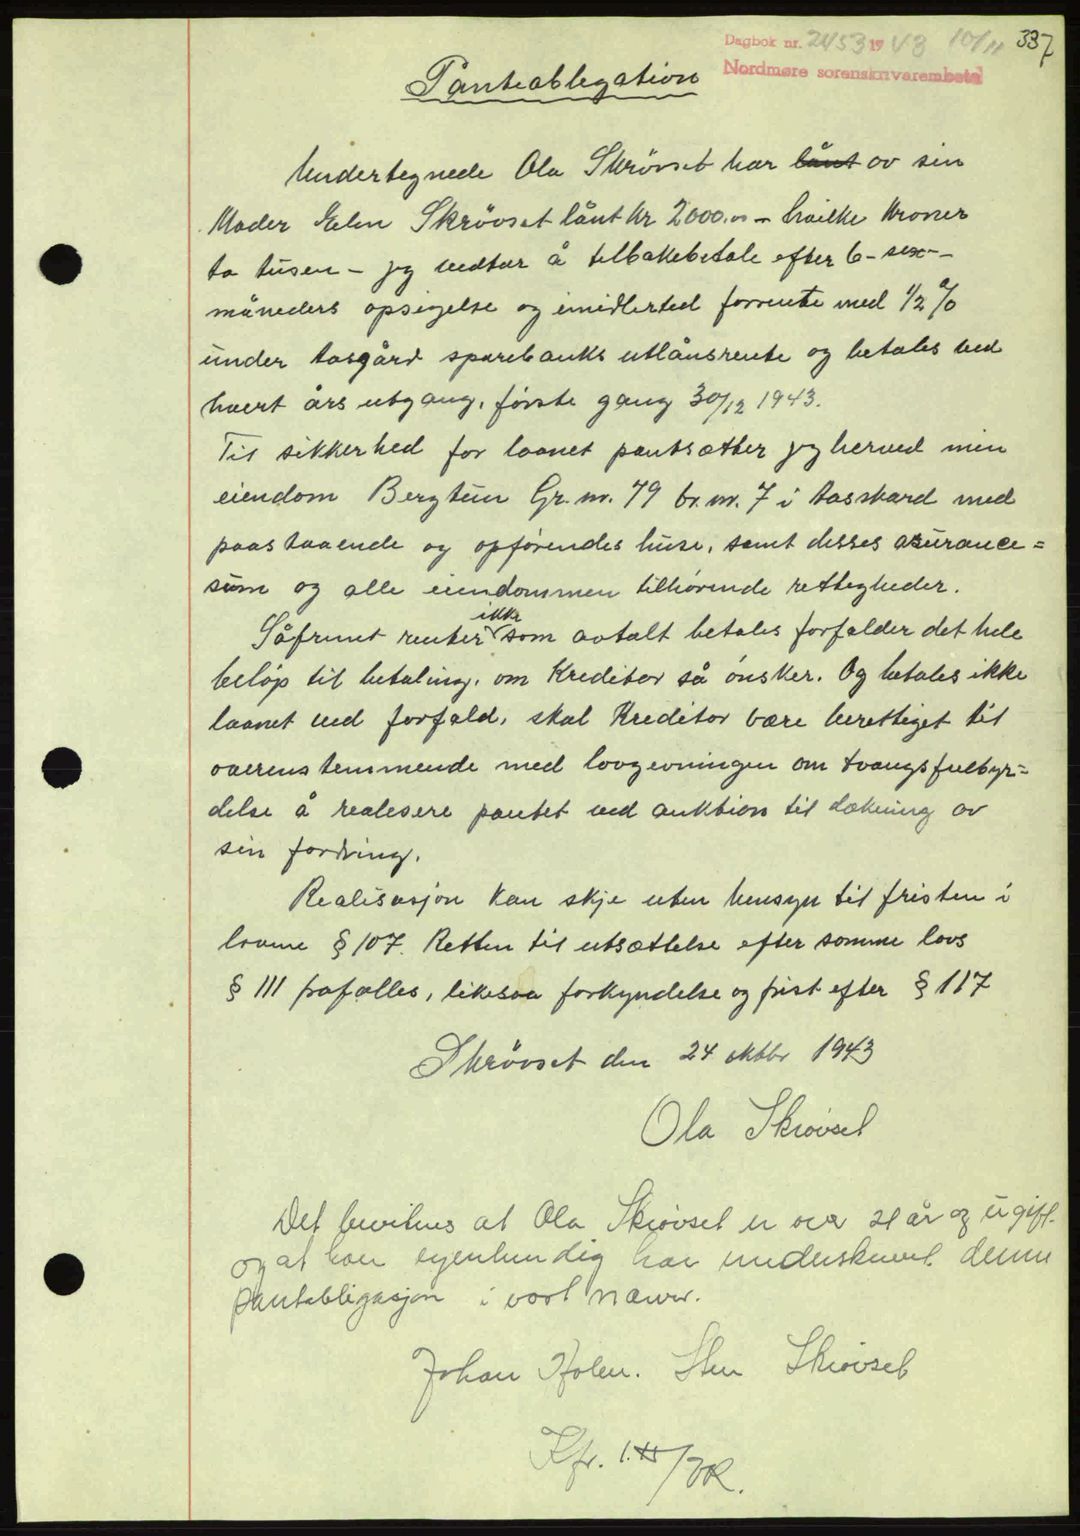 Dagbok nr. 2453 19 43 10/11 337
Nordmøre sorenskrivarembete
Panteobligation
Undertegnede Ola Skrövset har lånt av sin
Moder Elen Skrövset lånt kr 2000.00 – hvilke Kroner
to tusen – jeg vedtar å tilbakebetale efter 6 – sex –
måneders opsigelse og imidlertid forrente med 1/2 %
under Aasgård sparebanks utlånsrente og betales ved
hvert års utgang, første gang 30/12 1943.
Til sikkerhed for laanet pantsætter jeg herved min
eiendom Bergtun Gr. nr. 79 br. nr. 7 i Aasskard med
paastaaende og opførendes huse, samt disses assurance=
sum og alle eiendommen tilhørende rettigheder.
ikke
Såfremt renter som avtalt betales forfalder det hele
beløp til betaling, om Kreditor så ønsker. Og betales ikke
laanet ved forfald, skal Kreditor være berettiget til
overenstemmende med lovgevningen om tvangsfulbyr=
delse å realisere pantet ved auktion til dækning av
sin fordring.
Realisasjon kan skje uten hensyn til fristen i
lovens § 107. Retten til utsættelse efter samme lovs
§ 111 frafalles, likesaa forkyndelse og frist efter § 117
Skrövset den 24 oktbr 1943
Ola Skrövset
Det bevitnes at Ola Skrövset er over 21 år og ugift
og at han egenhendig har underskrevet denne
pantobligasjon i vort nærvær.
Johan Holen. Sten Skrövset
Kfr.